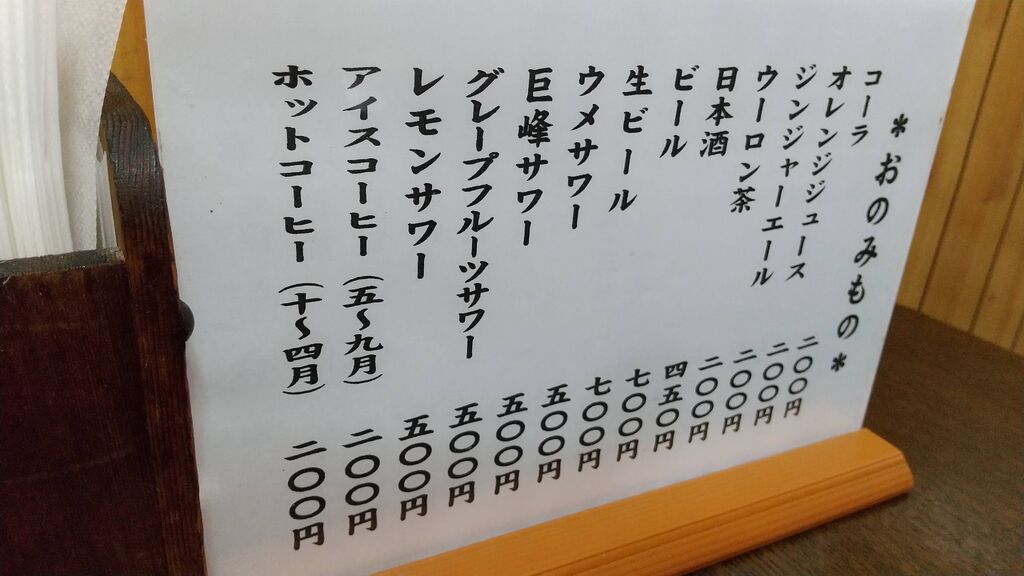 ＊おのみもの＊
コーラ 二〇〇円
オレンジジュース 二〇〇円
ジンジャーエール 二〇〇円
ウーロン茶 二〇〇円
日本酒 四五〇円
ビール 七〇〇円
生ビール 七〇〇円
ウメサワー 五〇〇円
巨峰サワー 五〇〇円
グレープフルーツサワー 五〇〇円
レモンサワー 五〇〇円
アイスコーヒー（五～九月） 二〇〇円
ホットコーヒー（十～四月） 二〇〇円